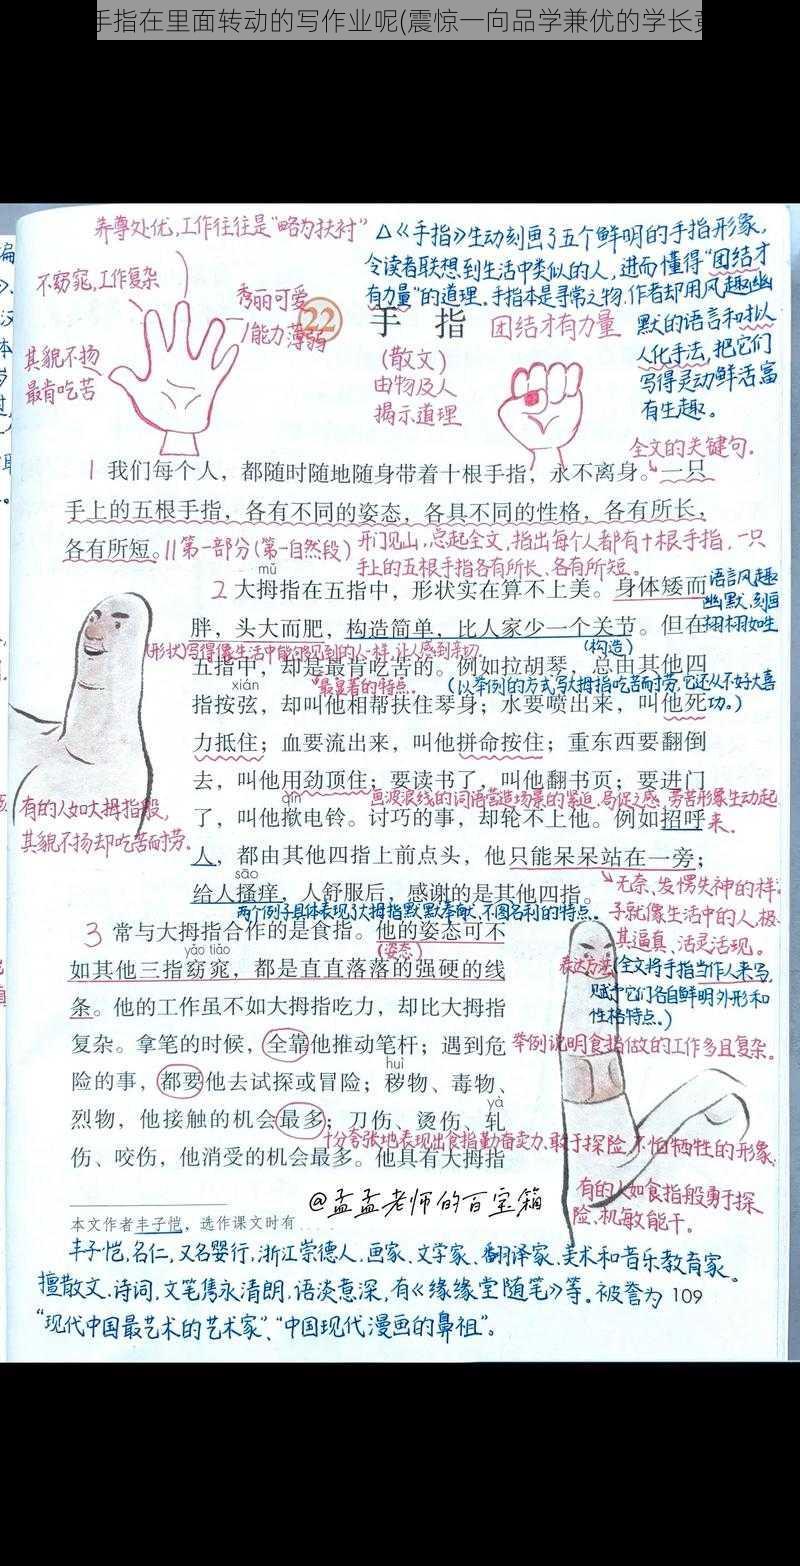 手指在里面转动的写作业呢(震惊一向品学兼优的学长竟
养尊处优,工作往往是“略为扶衬”
不窈窕,工作复杂
秀丽可爱
能力薄弱
其貌不扬
最肯吃苦
△《手指》生动刻画了五个鲜明的手指形象,
令读者联想到生活中类似的人,进而懂得“团结才
有力量”的道理。手指本是寻常之物,作者却用风趣幽
默的语言和拟人
人化手法,把它们
写得灵动鲜活富
有生趣。
22 手 指
团结才有力量
(散文)
由物及人
揭示道理
全文的关键句.
1 我们每个人,都随时随地随身带着十根手指,永不离身。一只
手上的五根手指,各有不同的姿态,各具不同的性格,各有所长,
各有所短。
第一部分(第一自然段)
开门见山,总起全文,指出每个人都有十根手指,一只
手上的五根手指各有所长、各有所短。
mǔ
2 大拇指在五指中,形状实在算不上美。身体矮而
语言风趣
幽默,刻画
栩栩如生
胖,头大而肥,构造简单,比人家少一个关节。但在
(构造)
(形状)写得像生活中能够见到的人一样,让人感到亲切.
五指中,却是最肯吃苦的。例如拉胡琴,总由其他四
xián
最显著的特点.
(以举例的方式写大拇指吃苦而耐劳,它还从不好大喜
功。)
指按弦,却叫他相帮扶住琴身;水要喷出来,叫他死
力抵住;血要流出来,叫他拼命按住;重东西要翻倒
去,叫他用劲顶住;要读书了,叫他翻书页;要进门
qìn
画波浪线的词语营造场景的紧迫、局促之感,劳苦形象生动起
来.
了,叫他揿电铃。讨巧的事,却轮不上他。例如招呼
人,都由其他四指上前点头,他只能呆呆站在一旁;
sāo
给人搔痒,人舒服后,感谢的是其他四指。
有的人如大拇指般,
其貌不扬却吃苦耐劳.
无奈、发愣失神的样
子就像生活中的人,极
其逼真、活灵活现。
两个例子具体表现了大拇指默默奉献、不图名利的特点。
3 常与大拇指合作的是食指。他的姿态可不
(姿态)
yǎo tiǎo
如其他三指窈窕,都是直直落落的强硬的线
条。他的工作虽不如大拇指吃力,却比大拇指
复杂。拿笔的时候,全靠他推动笔杆;遇到危
huì
险的事,都要他去试探或冒险;秽物、毒物、
yà
烈物,他接触的机会最多;刀伤、烫伤、轧
伤、咬伤,他消受的机会最多。他具有大拇指
表达方法
(全文将手指当作人来写,
赋予它们各自鲜明外形和
性格特点。)
举例说明食指做的工作多且复杂。
十分夸张地表现出食指勤奋卖力、敢于探险、不怕牺牲的形象.
有的人如食指般勇于探
险、机敏能干。
@孟孟老师的百宝箱
本文作者丰子恺,选作课文时有
丰子恺,名仁,又名婴行,浙江崇德人,画家、文学家、翻译家、美术和音乐教育家。
擅散文、诗词,文笔隽永清朗,语淡意深,有《缘缘堂随笔》等。被誉为
109
“现代中国最艺术的艺术家”、“中国现代漫画的鼻祖”。